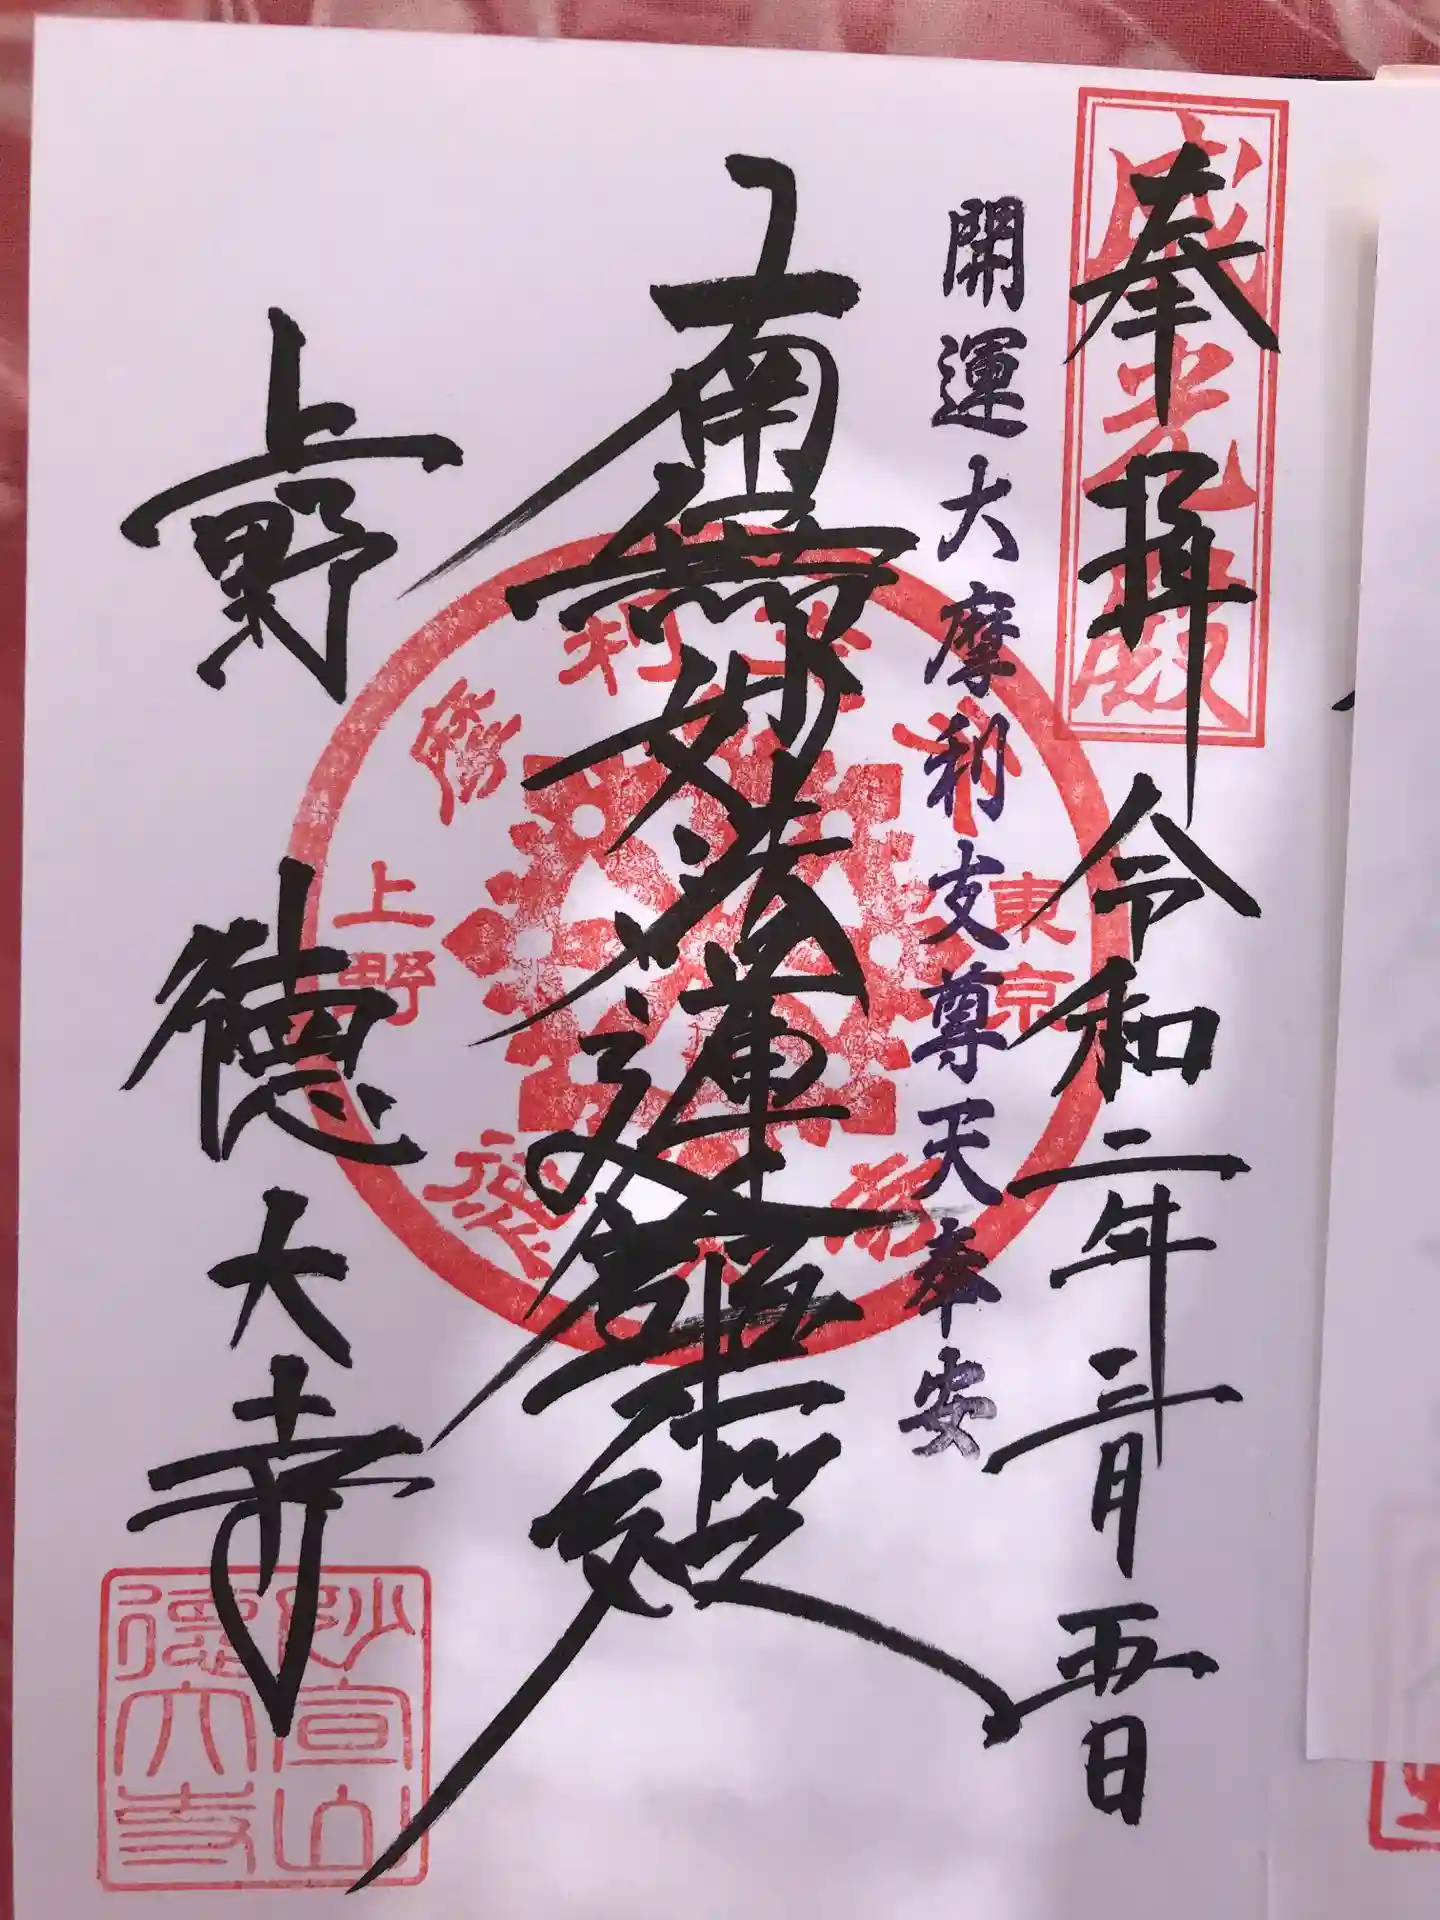 奉拝 令和二年三月五日
威光殿
開運大摩利支尊天奉安
南無妙法蓮華経
東京
上野
摩利支天
徳大寺
上野 徳大寺
妙宣山
徳大寺